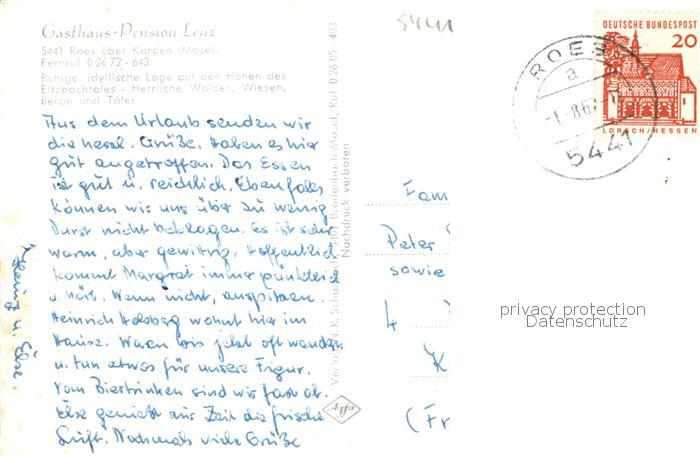 Gasthaus-Pension Lenz
5441 Roes über Karden (Mosel)
Fernruf 0 26 72 - 643
Ruhige, idyllische Lage auf den Höhen des
Eltzbachtales - Herrliche Wälder, Wiesen,
Berge und Täler
5441
DEUTSCHE BUNDESPOST
20
LORSCH/HESSEN
ROES
a
-1.-8.67-
5441
Aus dem Urlaub senden wir
die herzl. Grüße. Haben es hier
gut angetroffen. Das Essen
ist gut u. reichlich. Ebenfalls
können wir uns über zu wenig
Durst nicht beklagen. Es ist sehr
warm, aber gewittrig. Hoffentlich
kommt Margret immer pünktlich
u. hört. Wenn nicht,
Heinrich wohnt hier im
Hause. Waren bis jetzt oft wandern
u. tun etwas für unsere Figur.
Vom Biertrinken sind wir fast ab.
Else genießt zur Zeit die frische
Luft. Nochmals viele Grüße
Heinz u. Else.
Nachdruck verboten
Agfa
Fam
Peter
sowie
4
K
(Fr
privacy protection
Datenschutz